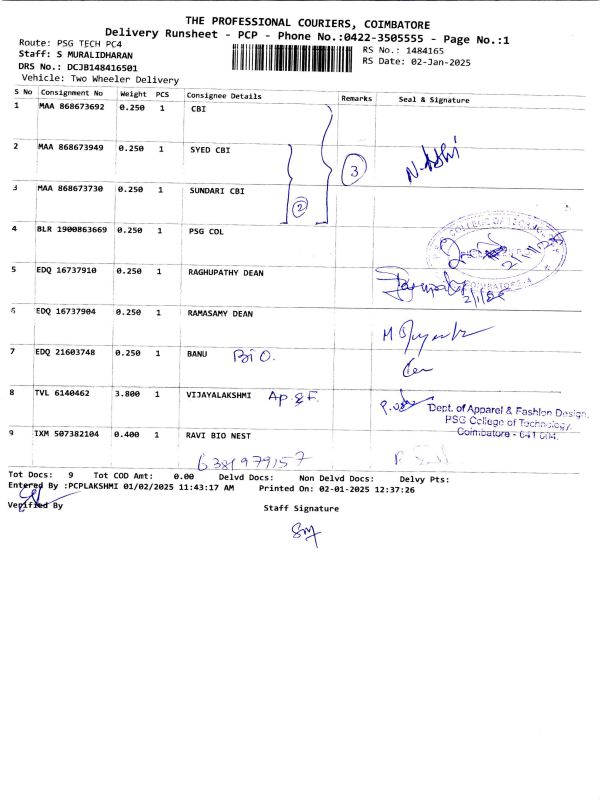 THE PROFESSIONAL COURIERS, COIMBATORE
Delivery Runsheet - PCP - Phone No.:0422-3505555 - Page No.:1
Route: PSG TECH PC4
Staff: S MURALIDHARAN
DRS No.: DCJB148416501
Vehicle: Two Wheeler Delivery
RS No.: 1484165
RS Date: 02-Jan-2025
S No Consignment No Weight PCS Consignee Details Remarks Seal & Signature
1 MAA 868673692 0.250 1 CBI
2 MAA 868673949 0.250 1 SYED CBI 3
3 MAA 868673730 0.250 1 SUNDARI CBI 2
4 BLR 1900863669 0.250 1 PSG COL
COLLEGE OF TECHNOLOGY
COIMBATORE-4
5 EDQ 16737910 0.250 1 RAGHUPATHY DEAN
6 EDQ 16737904 0.250 1 RAMASAMY DEAN
7 EDQ 21603748 0.250 1 BANU BiO.
8 TVL 6140462 3.800 1 VIJAYALAKSHMI Ap & F.
Dept. of Apparel & Fashion Design,
PSG College of Technology,
Coimbatore - 641 004.
9 IXM 507382104 0.400 1 RAVI BIO NEST
6381979157
Tot Docs: 9 Tot COD Amt: 0.00 Delvd Docs: Non Delvd Docs: Delvy Pts:
Entered By :PCPLAKSHMI 01/02/2025 11:43:17 AM Printed On: 02-01-2025 12:37:26
Verified By Staff Signature